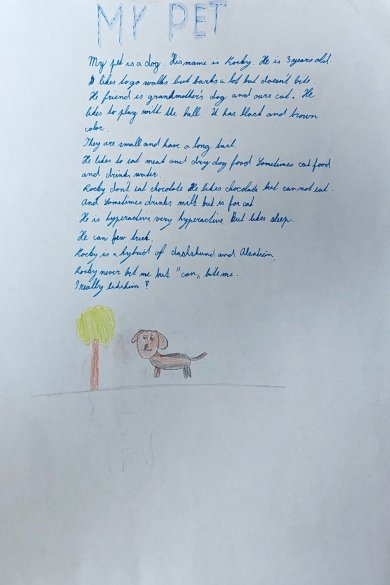 MY PET
My pet is a dog. His name is Rocky. He is 3 years old.
likes to go walks but barks a lot but doesn't bite.
He friend is grandmother's dog and ours cat. He
likes to play with the ball. It has black and brown
color.
They are small and have a long tail
He likes to eat meat and dry dog food Sometimes cat food
and drinks water.
Rocky don't eat chocolate He likes chocolate but can not eat.
And Sometimes drinks milk but is for cat
He is hyperactive very hyperactive. But likes sleep.
He can few trick.
Rocky is a hybrid of dachshund and
Rocky never bit me but "can" bite me.
I really like him !